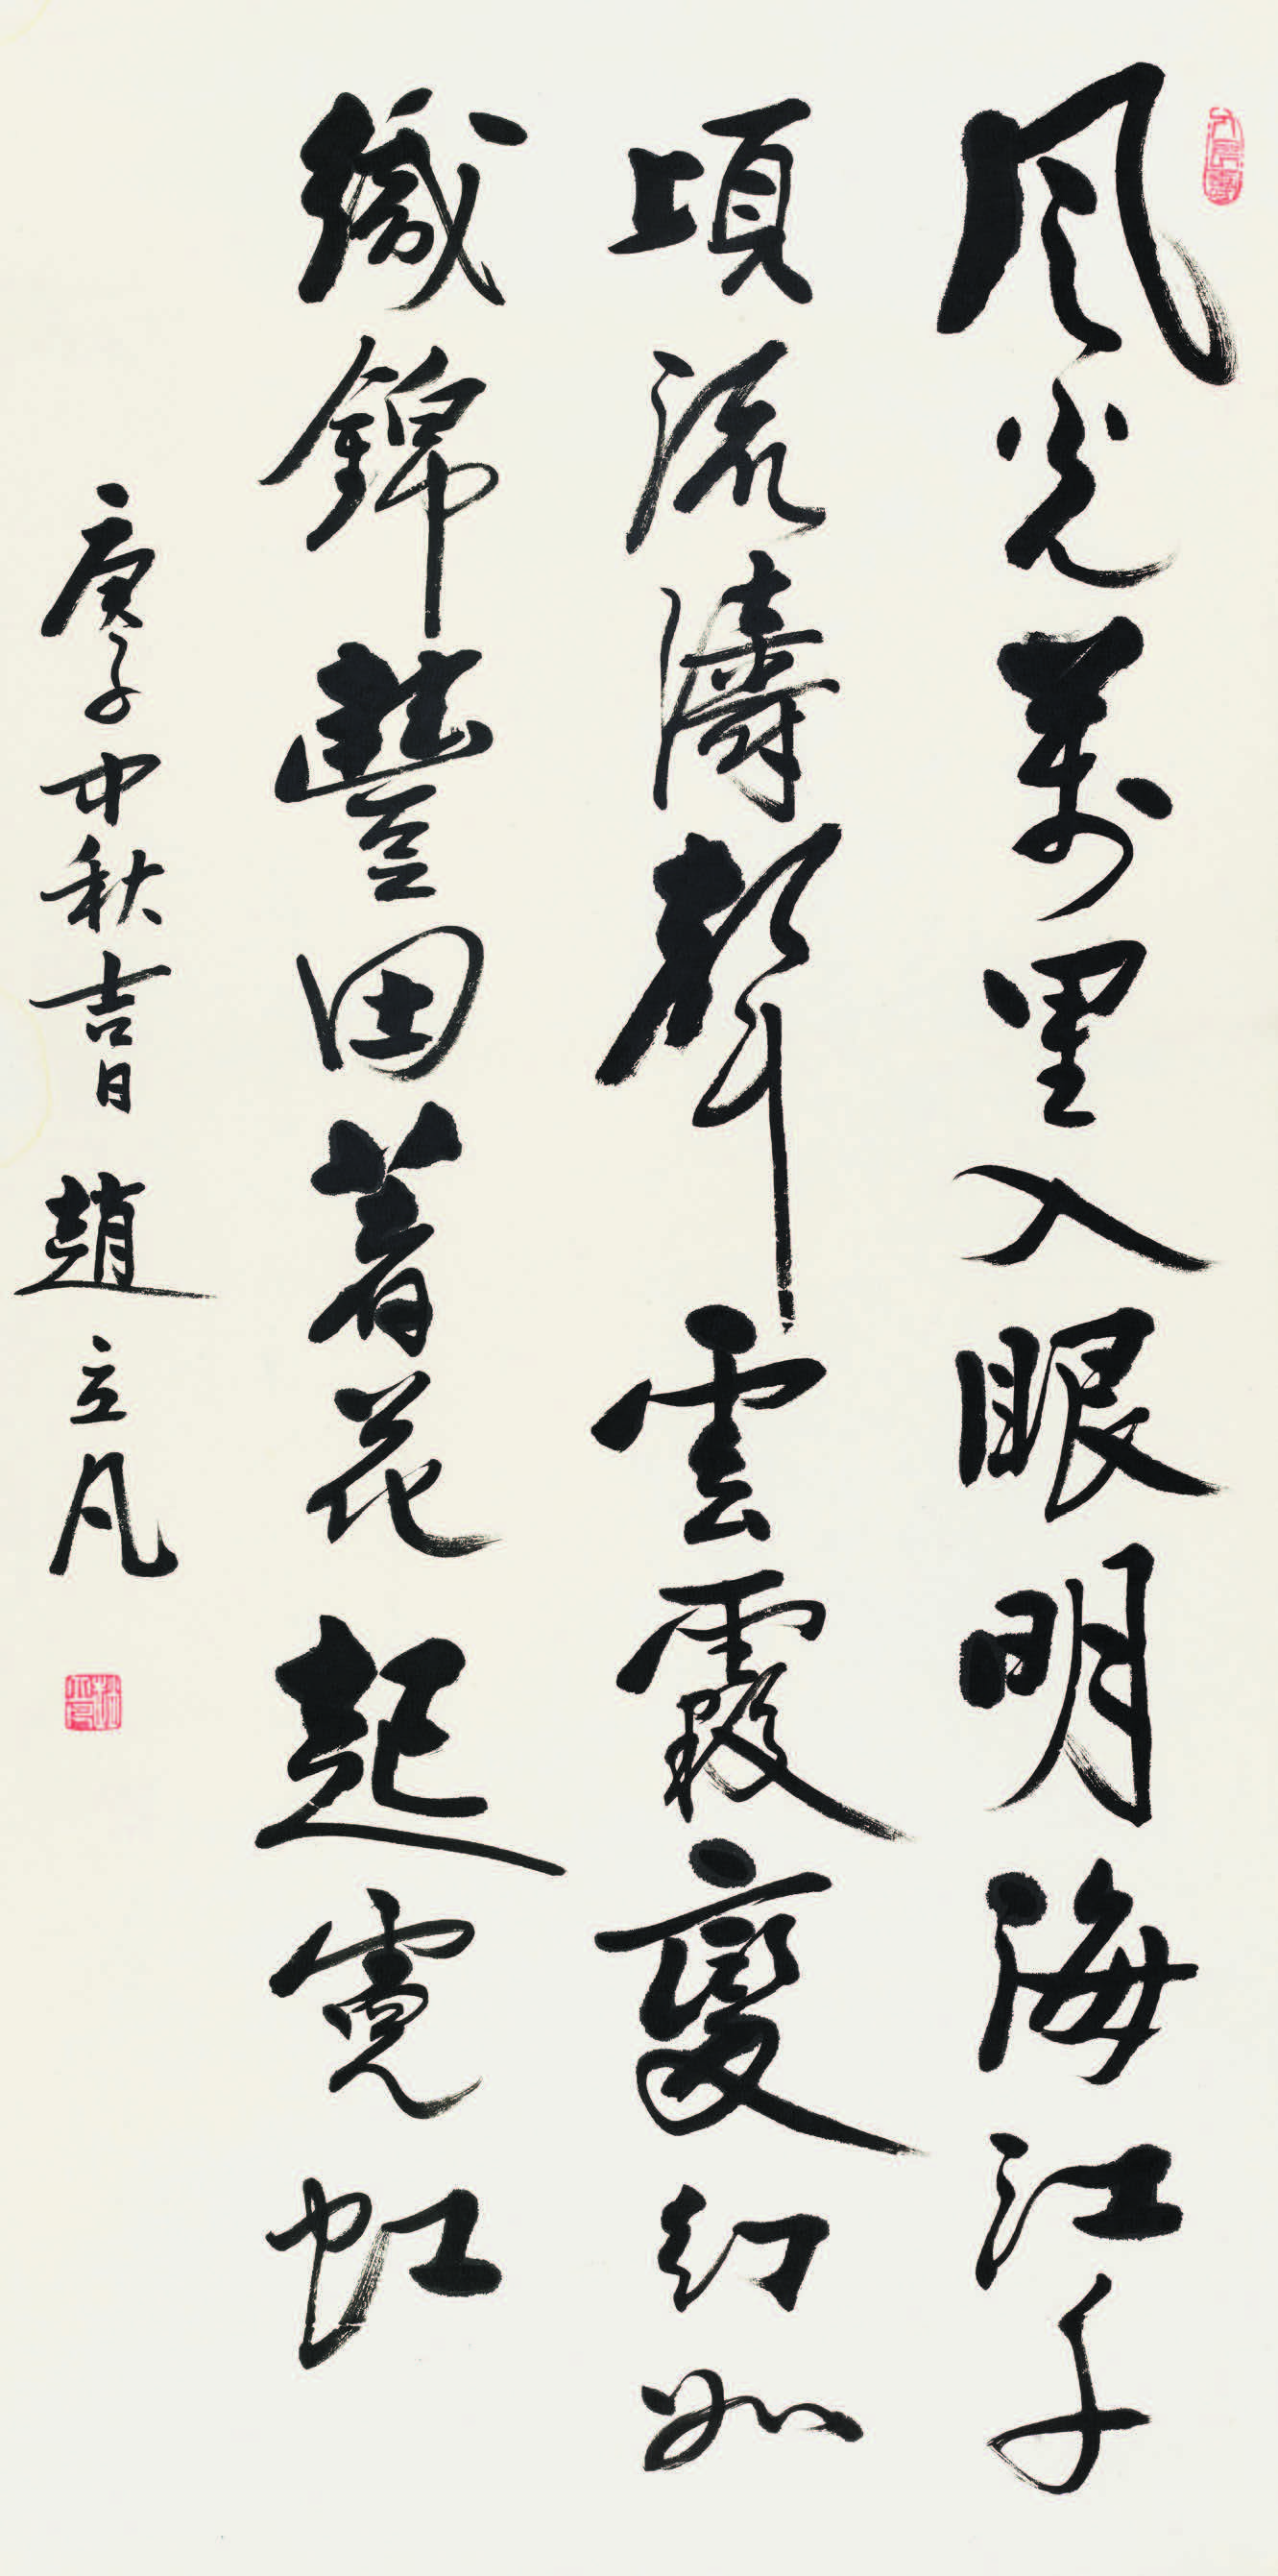 風光萬里入眼明海江千
頃流濤聲雲霞變幻如
織錦豐田著花起霓虹
庚子中秋吉日 趙立凡